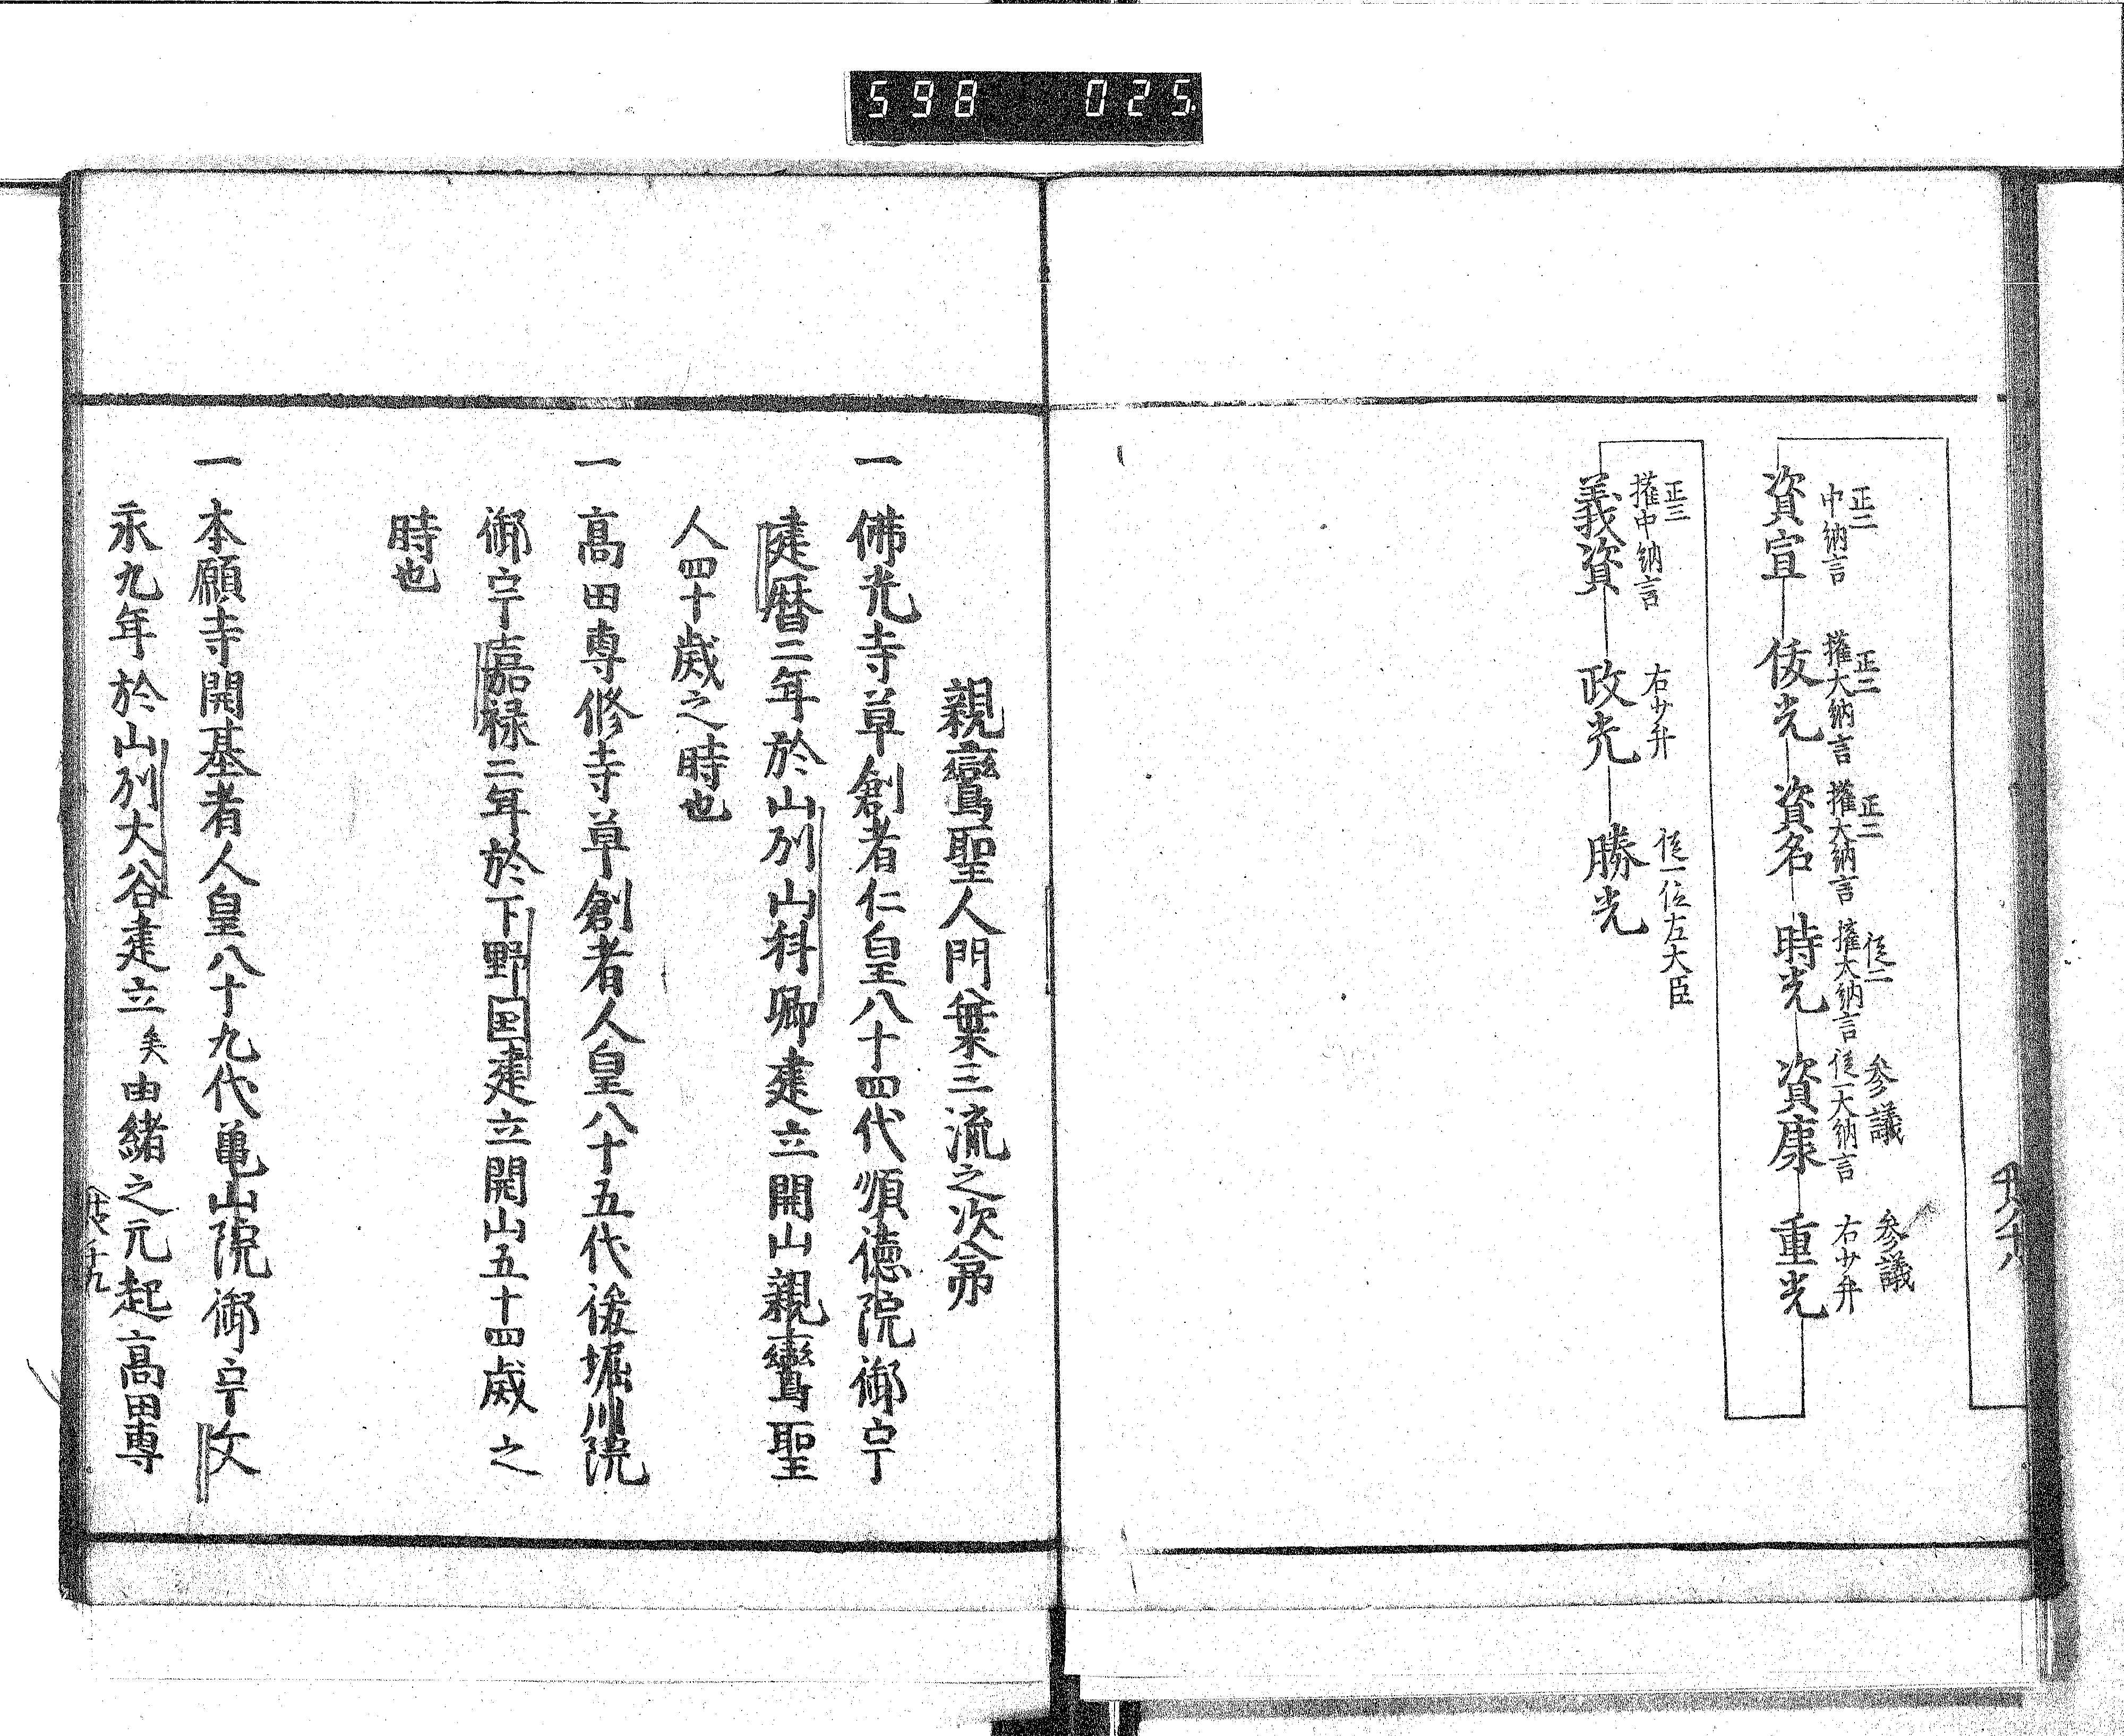 598 025
正二
中納言
資宣
正二
権大納言
俊光
正二
権大納言
資名
従二
権大納言
時光
参議
従一大納言
資康
参議
右少弁
重光
正三
権中納言
義資
右少弁
政光
従一位左大臣
勝光
親鸞聖人門葉三流之次第
一 佛光寺草創者仁皇八十四代順徳院御宇
建暦二年於山列山科郷建立開山親鸞聖
人四十歳之時也
一 髙田専修寺草創者人皇八十五代後堀川院
御宇嘉禄二年於下野国建立開山五十四歳之
時也
一 本願寺開基者人皇八十九代亀山院御宇文
永九年於山列大谷建立矣由緒之元起髙田専